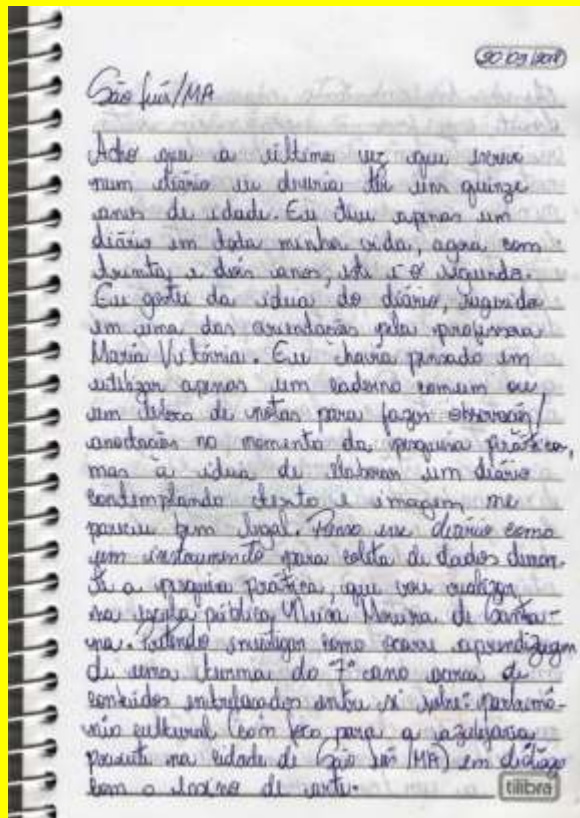 20/03/2018
São Luís/MA
Acho que a última vez que escrevi
num diário eu deveria ter uns quinze
anos de idade. Eu tive apenas um
diário em toda minha vida, agora com
trinta e dois anos, este é o segundo.
Eu gostei da ideia do diário, sugerida
em uma das orientações pela professora
Maria Vitória. Eu havia pensado em
utilizar apenas um caderno comum ou
um bloco de notas para fazer observação/
anotações no momento da pesquisa prática,
mas a ideia de elaborar um diário
contemplando texto e imagem me
pareceu bem legal. Penso esse diário como
um instrumento para coleta de dados duran-
te a pesquisa prática, que vou realizar
na escola pública, Moura de Santa-
na. Pretendo investigar como ocorre aprendizagem
de uma turma do 7º ano acerca de
conteúdos entrelaçados entre si sobre: patrimô-
nio cultural (com foco para a azulejaria
presente na cidade de São Luís/MA) em diálogo
com o ensino de arte.
tilibra